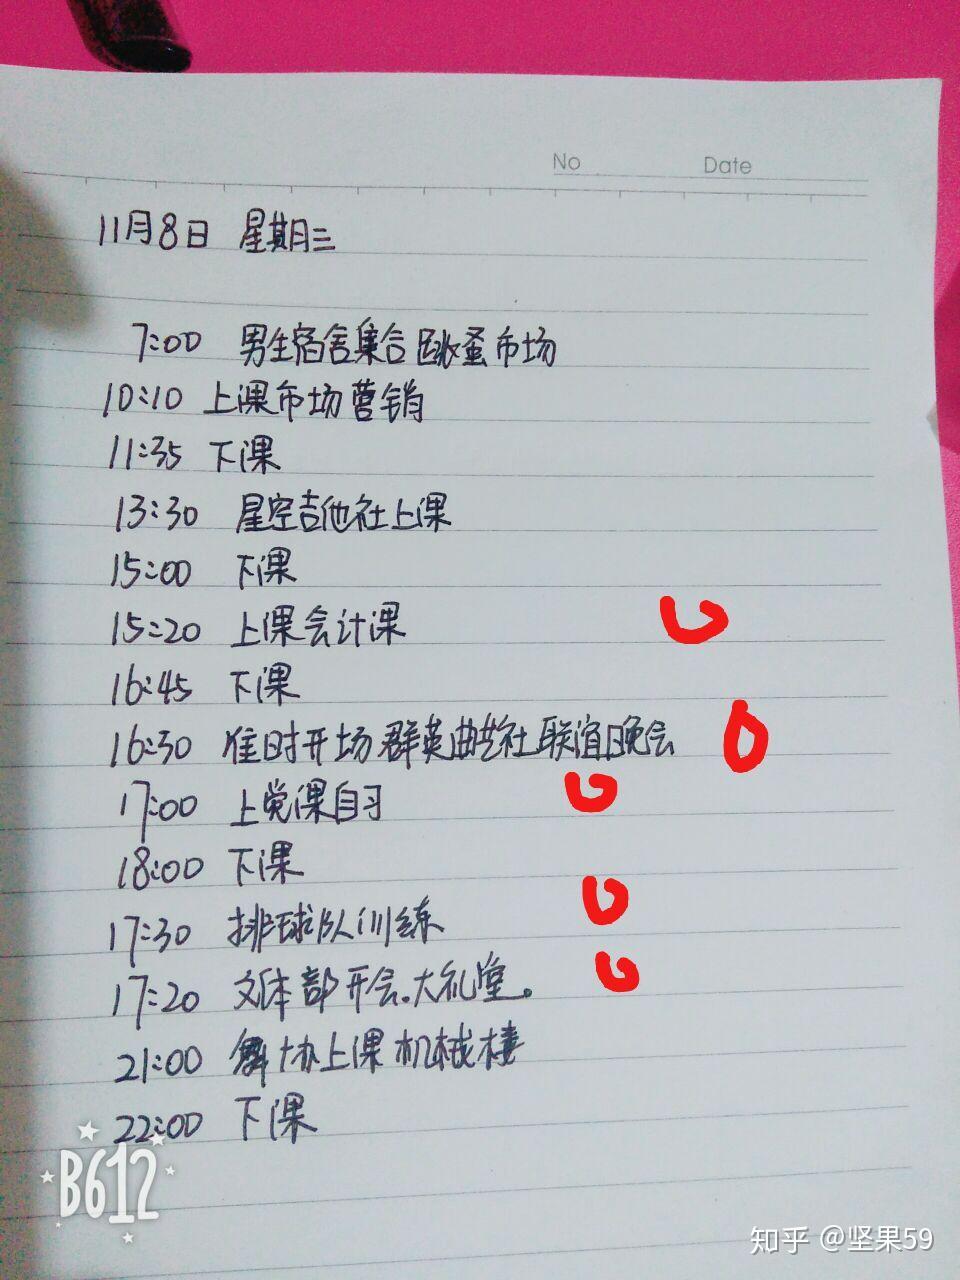 No Date
11月8日 星期三
7:00 男生宿舍集合跳蚤市场
10:10 上课市场营销
11:35 下课
13:30 星空吉他社上课
15:00 下课
15:20 上课会计课
16:45 下课
16:30 准时开场群英曲艺社联谊晚会
17:00 上党课自习
18:00 下课
17:30 排球队训练
17:20 文体部开会.大礼堂。
21:00 舞协上课机械楼
22:00 下课
B612
知乎 @坚果59